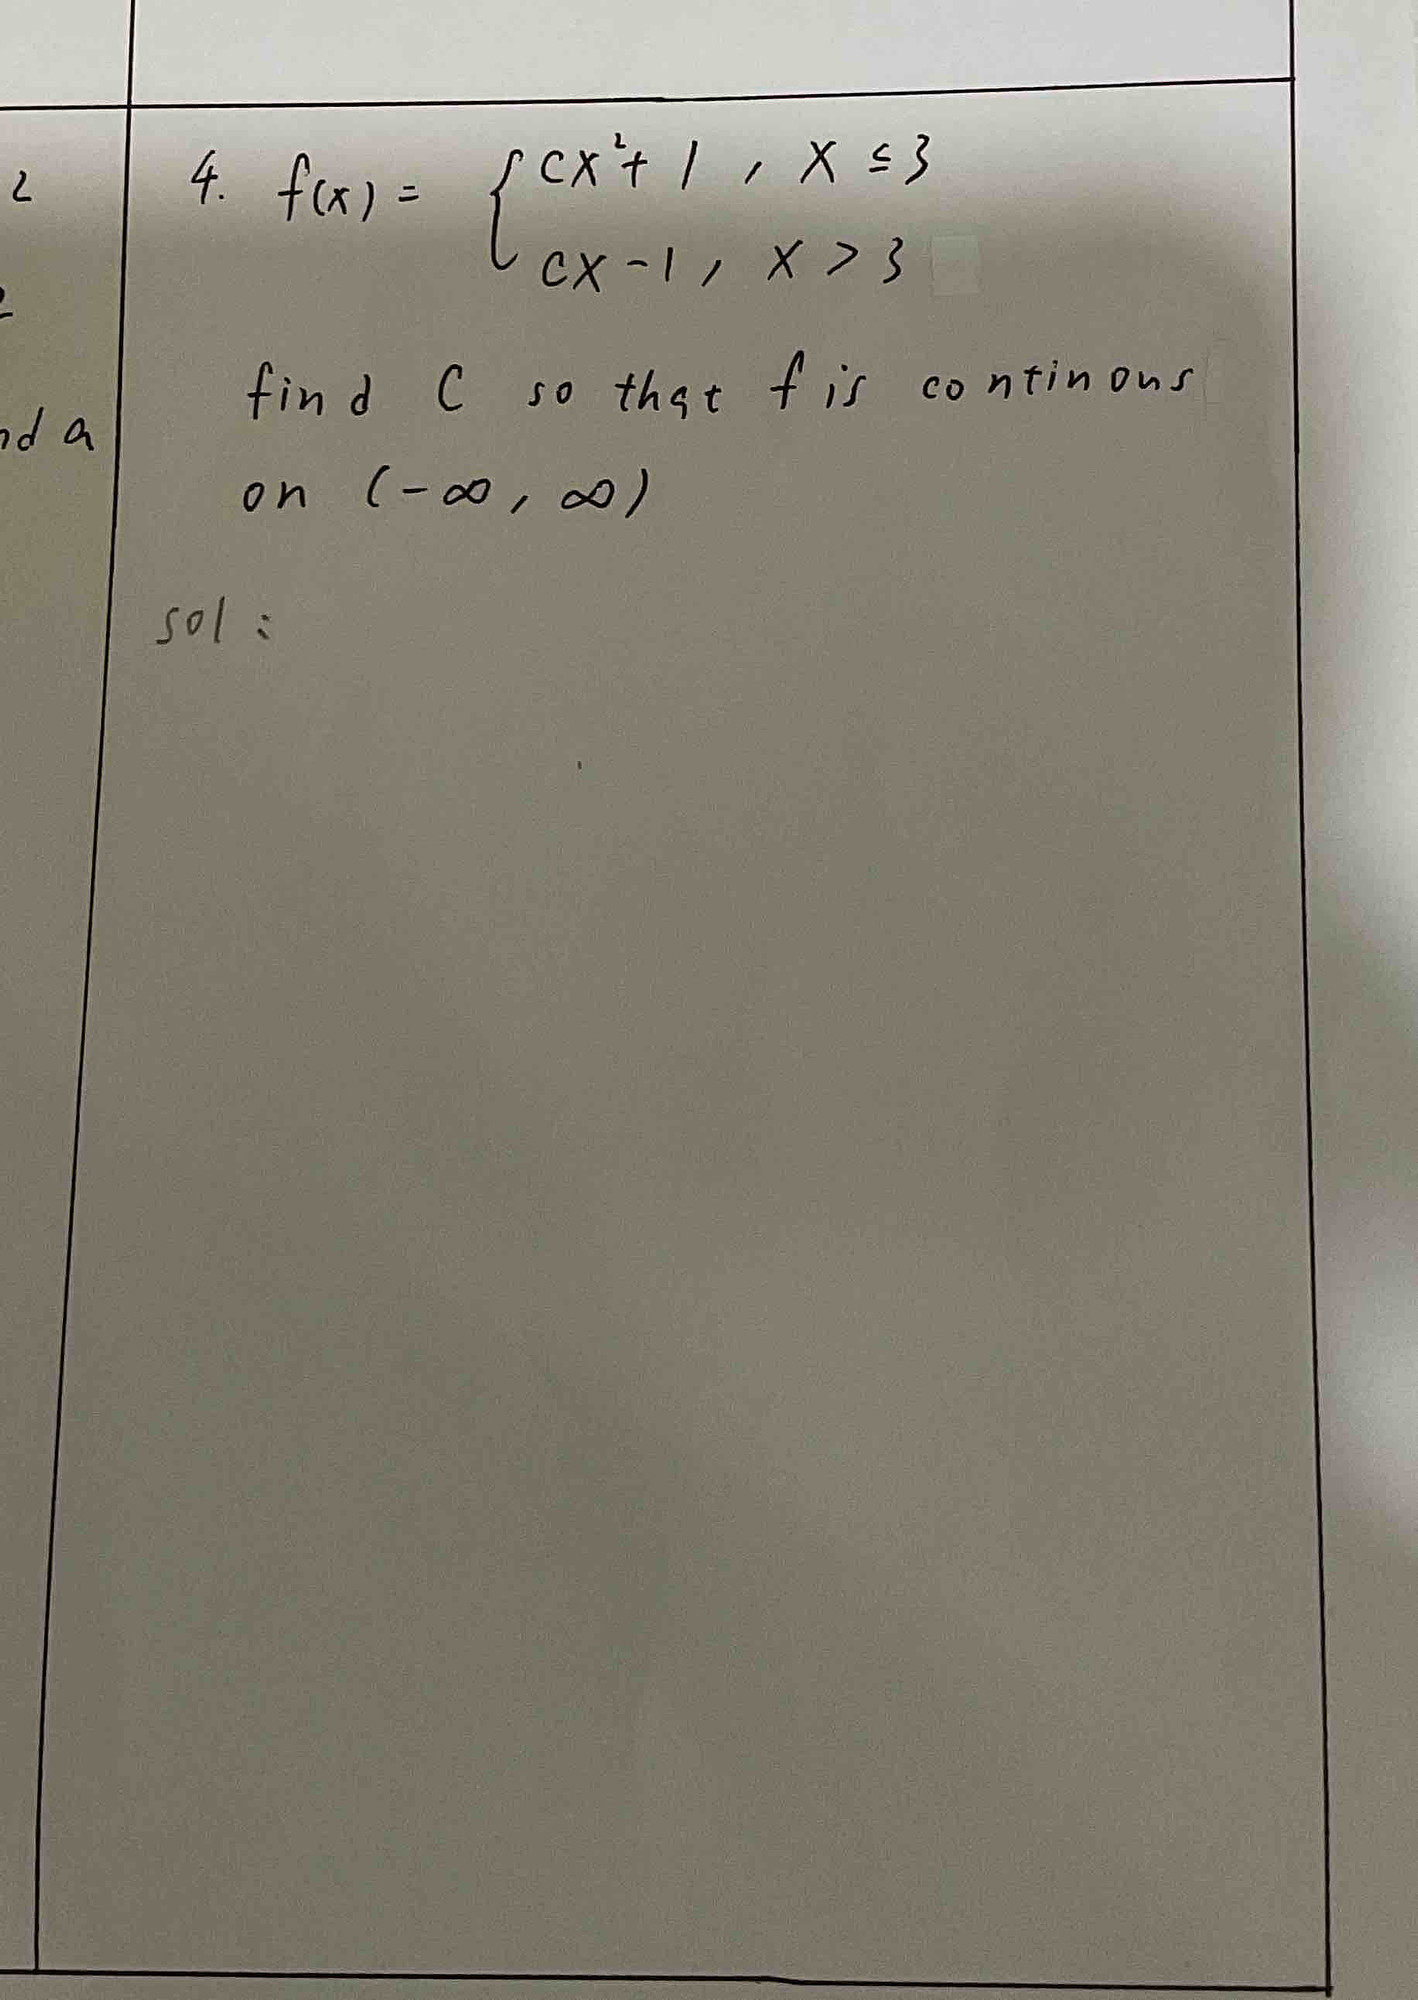 2
nd a
4. f(x) = { cx²+1, x ≤ 3
cx-1, x > 3
find C so that f is continous
on (-∞, ∞)
sol: